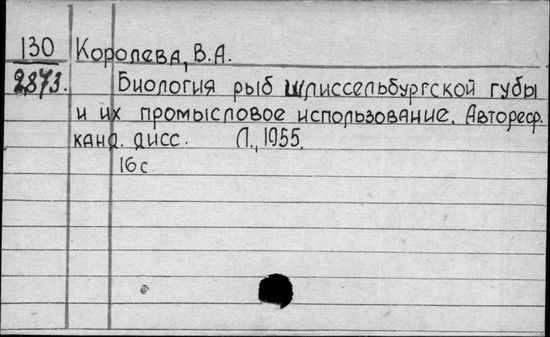 130 Королева, В.А.
2873. Биология рыб Шлиссельбургской губы
и их промысловое использование. Автореф.
канд. дисс. Л., 1955.
16 с